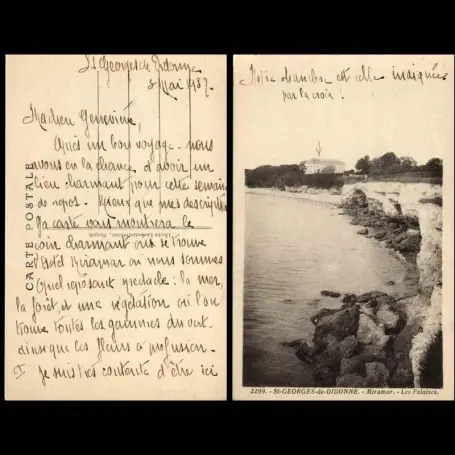 St Georges de Didonne
3 Mai 1937.
Ma chère Geneviève,
Après un bon voyage - nous
avons eu la chance d'avoir un
lieu charmant pour cette semaine
de repos. Mieux que mes descriptions
la carte vous montrera le
coin charmant où se trouve
l'Hôtel Miramar où nous sommes
Quel reposant spectacle : la mer,
la forêt, et une végétation où l'on
trouve toutes les gammes du vert.
ainsi que les fleurs à profusion -
Je suis très contente d'être ici
CARTE POSTALE
Notre chambre est celle indiquée
par la croix !
2299. - St-GEORGES-de-DIDONNE. - Miramar. - Les Falaises.